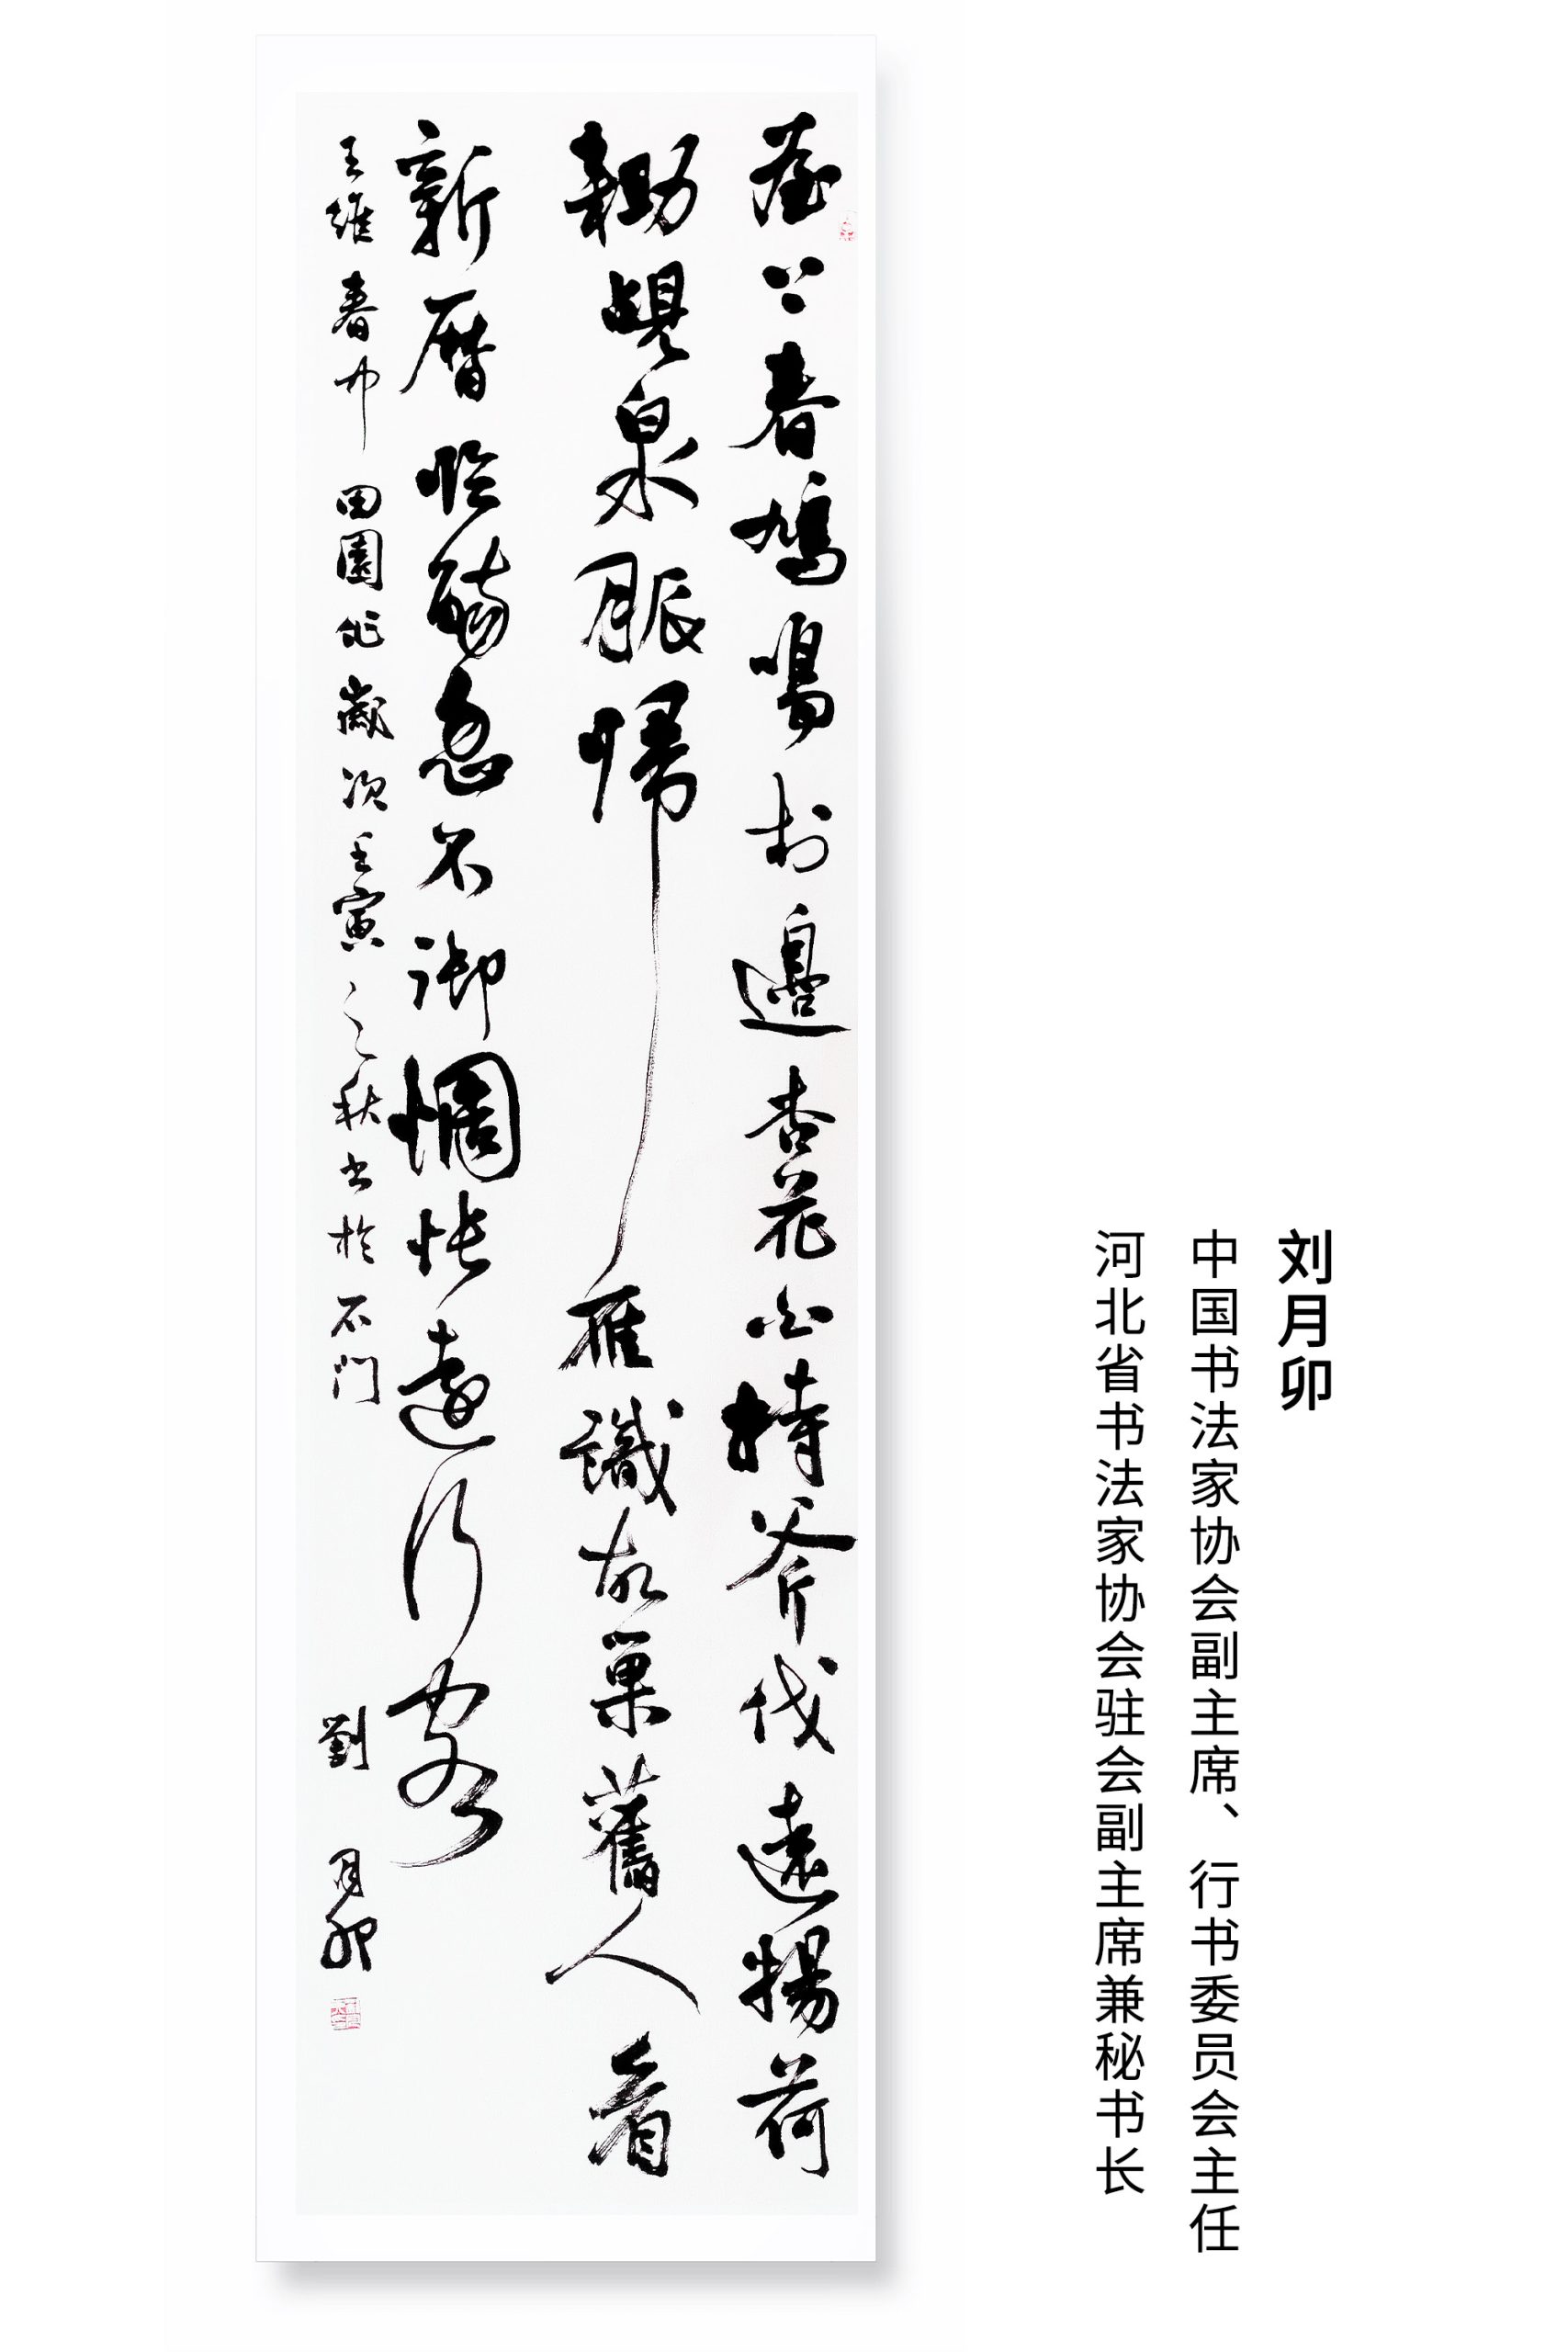 刘月卯
中国书法家协会副主席、行书委员会主任
河北省书法家协会驻会副主席兼秘书长
屋上春鳩鳴村邊杏花白持斧伐遠揚荷
耡覘泉脈歸雁識故巢舊人看
新曆臨觴忽不御惆悵遠行客
王維春中田園作歲次壬寅之秋書於石門 劉月卯